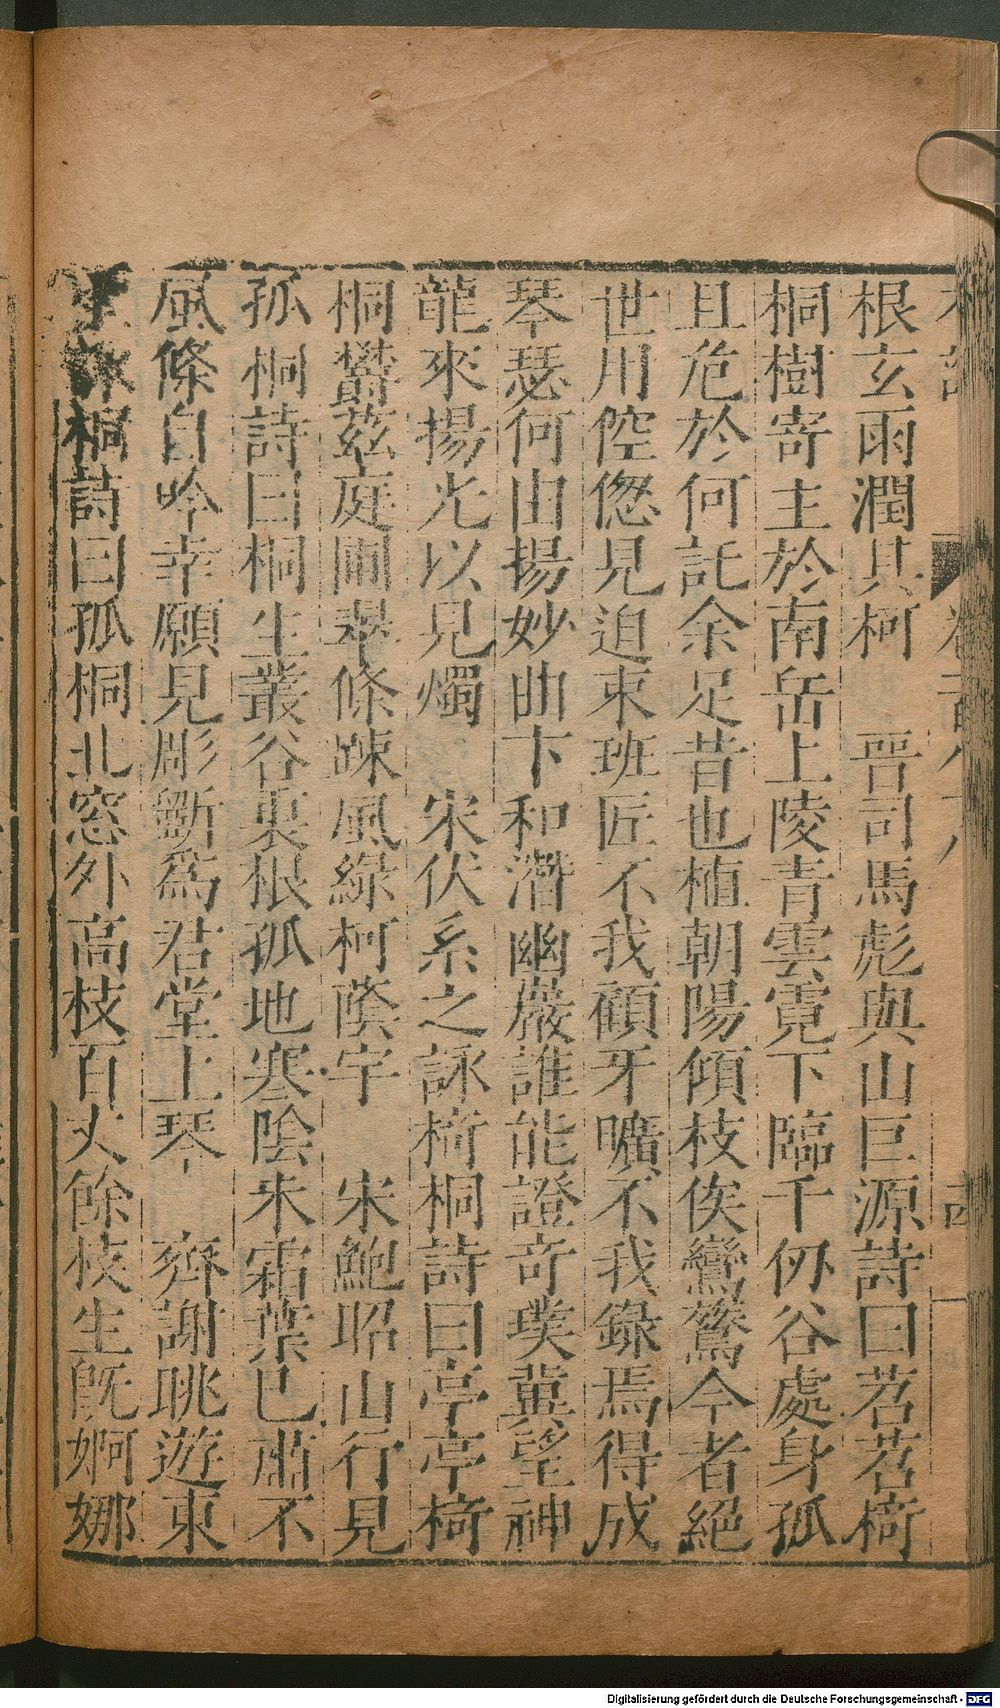 根玄雨潤其柯　晉司馬彪與山巨源詩曰苕苕椅
桐樹寄主於南岳上陵青雲霓下臨千仞谷處身孤
且危於何託余足昔也植朝陽傾枝俟鸞鷟今者絕
世用倥偬見迫束班匠不我顧牙曠不我錄焉得成
琴瑟何由揚妙曲卞和潛幽巖誰能證奇璞冀望神
龍來揚光以見燭　宋伏系之詠椅桐詩曰亭亭椅
桐鬱茲庭圃翠條疎風綠柯蔭宇　宋鮑昭山行見
孤桐詩曰桐生叢谷裏根孤地寒陰未霜葉已肅不
風條自吟幸願見彫斲為君堂上琴　齊謝眺遊東
桐詩曰孤桐北窓外高枝百丈餘枝生旣婀娜
Digitalisierung gefördert durch die Deutsche Forschungsgemeinschaft - DFG